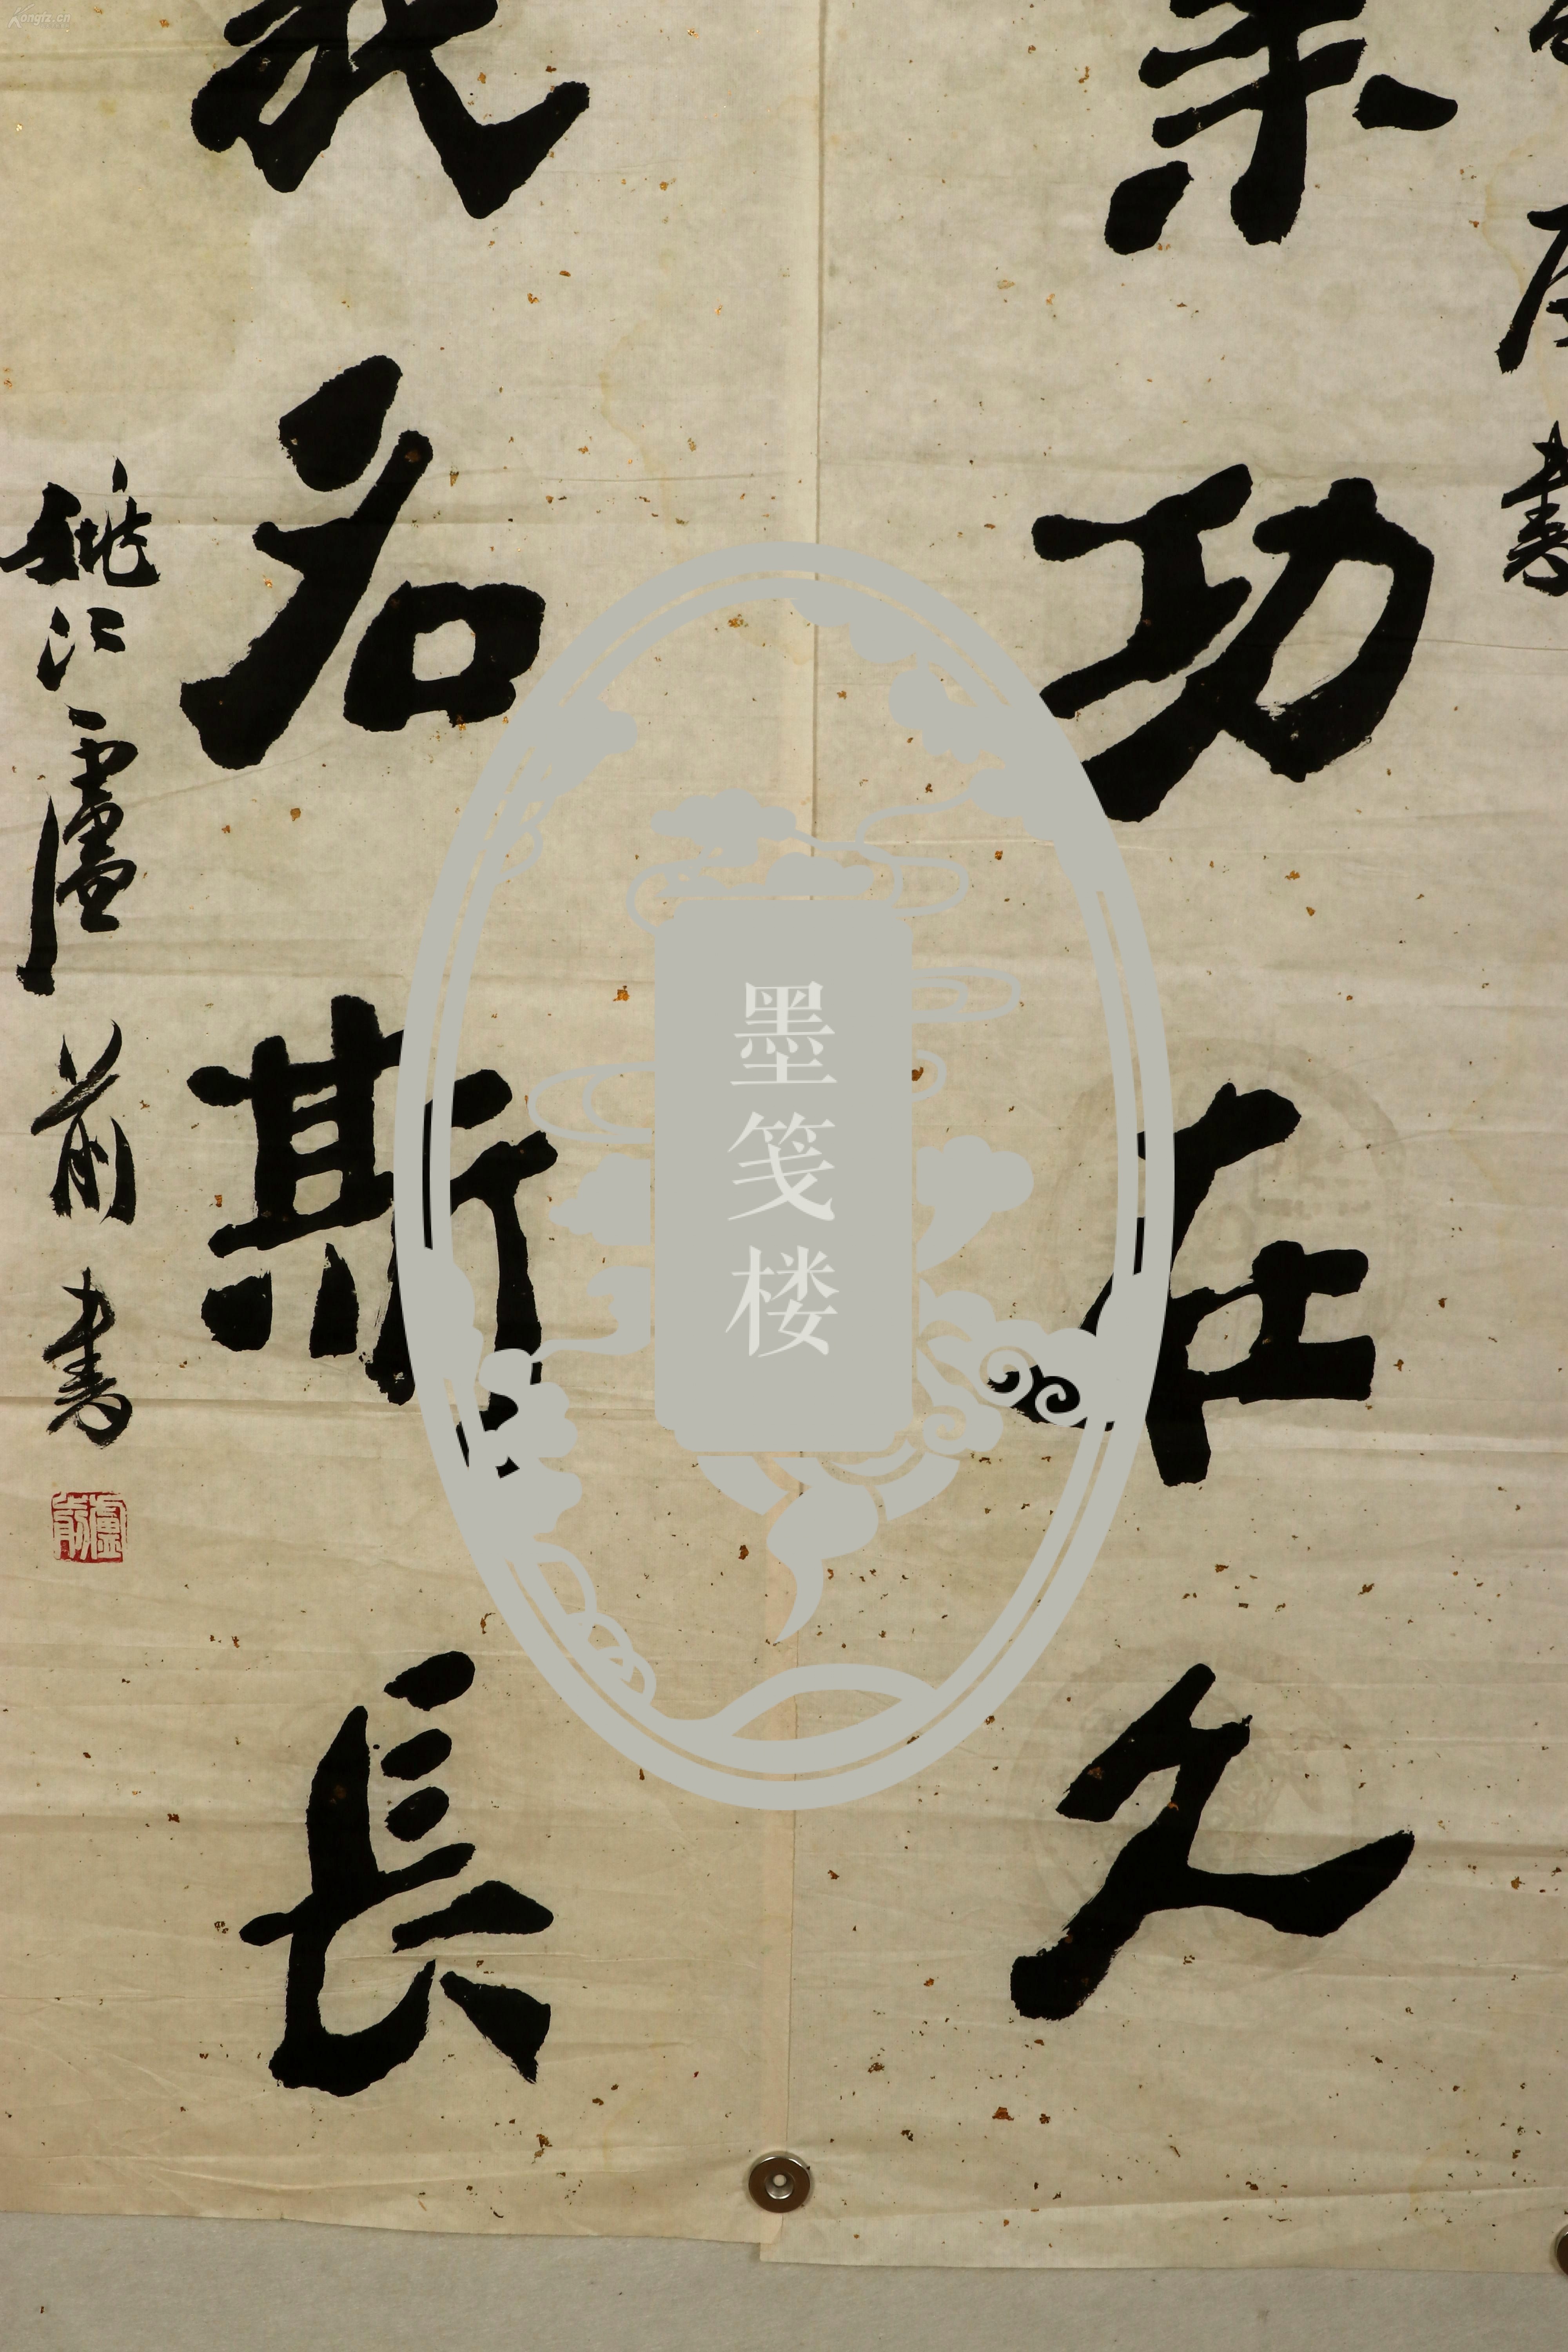 書
功在久
名斯長
姚江盧前書
盧前
墨笺楼
Kongfz.cn